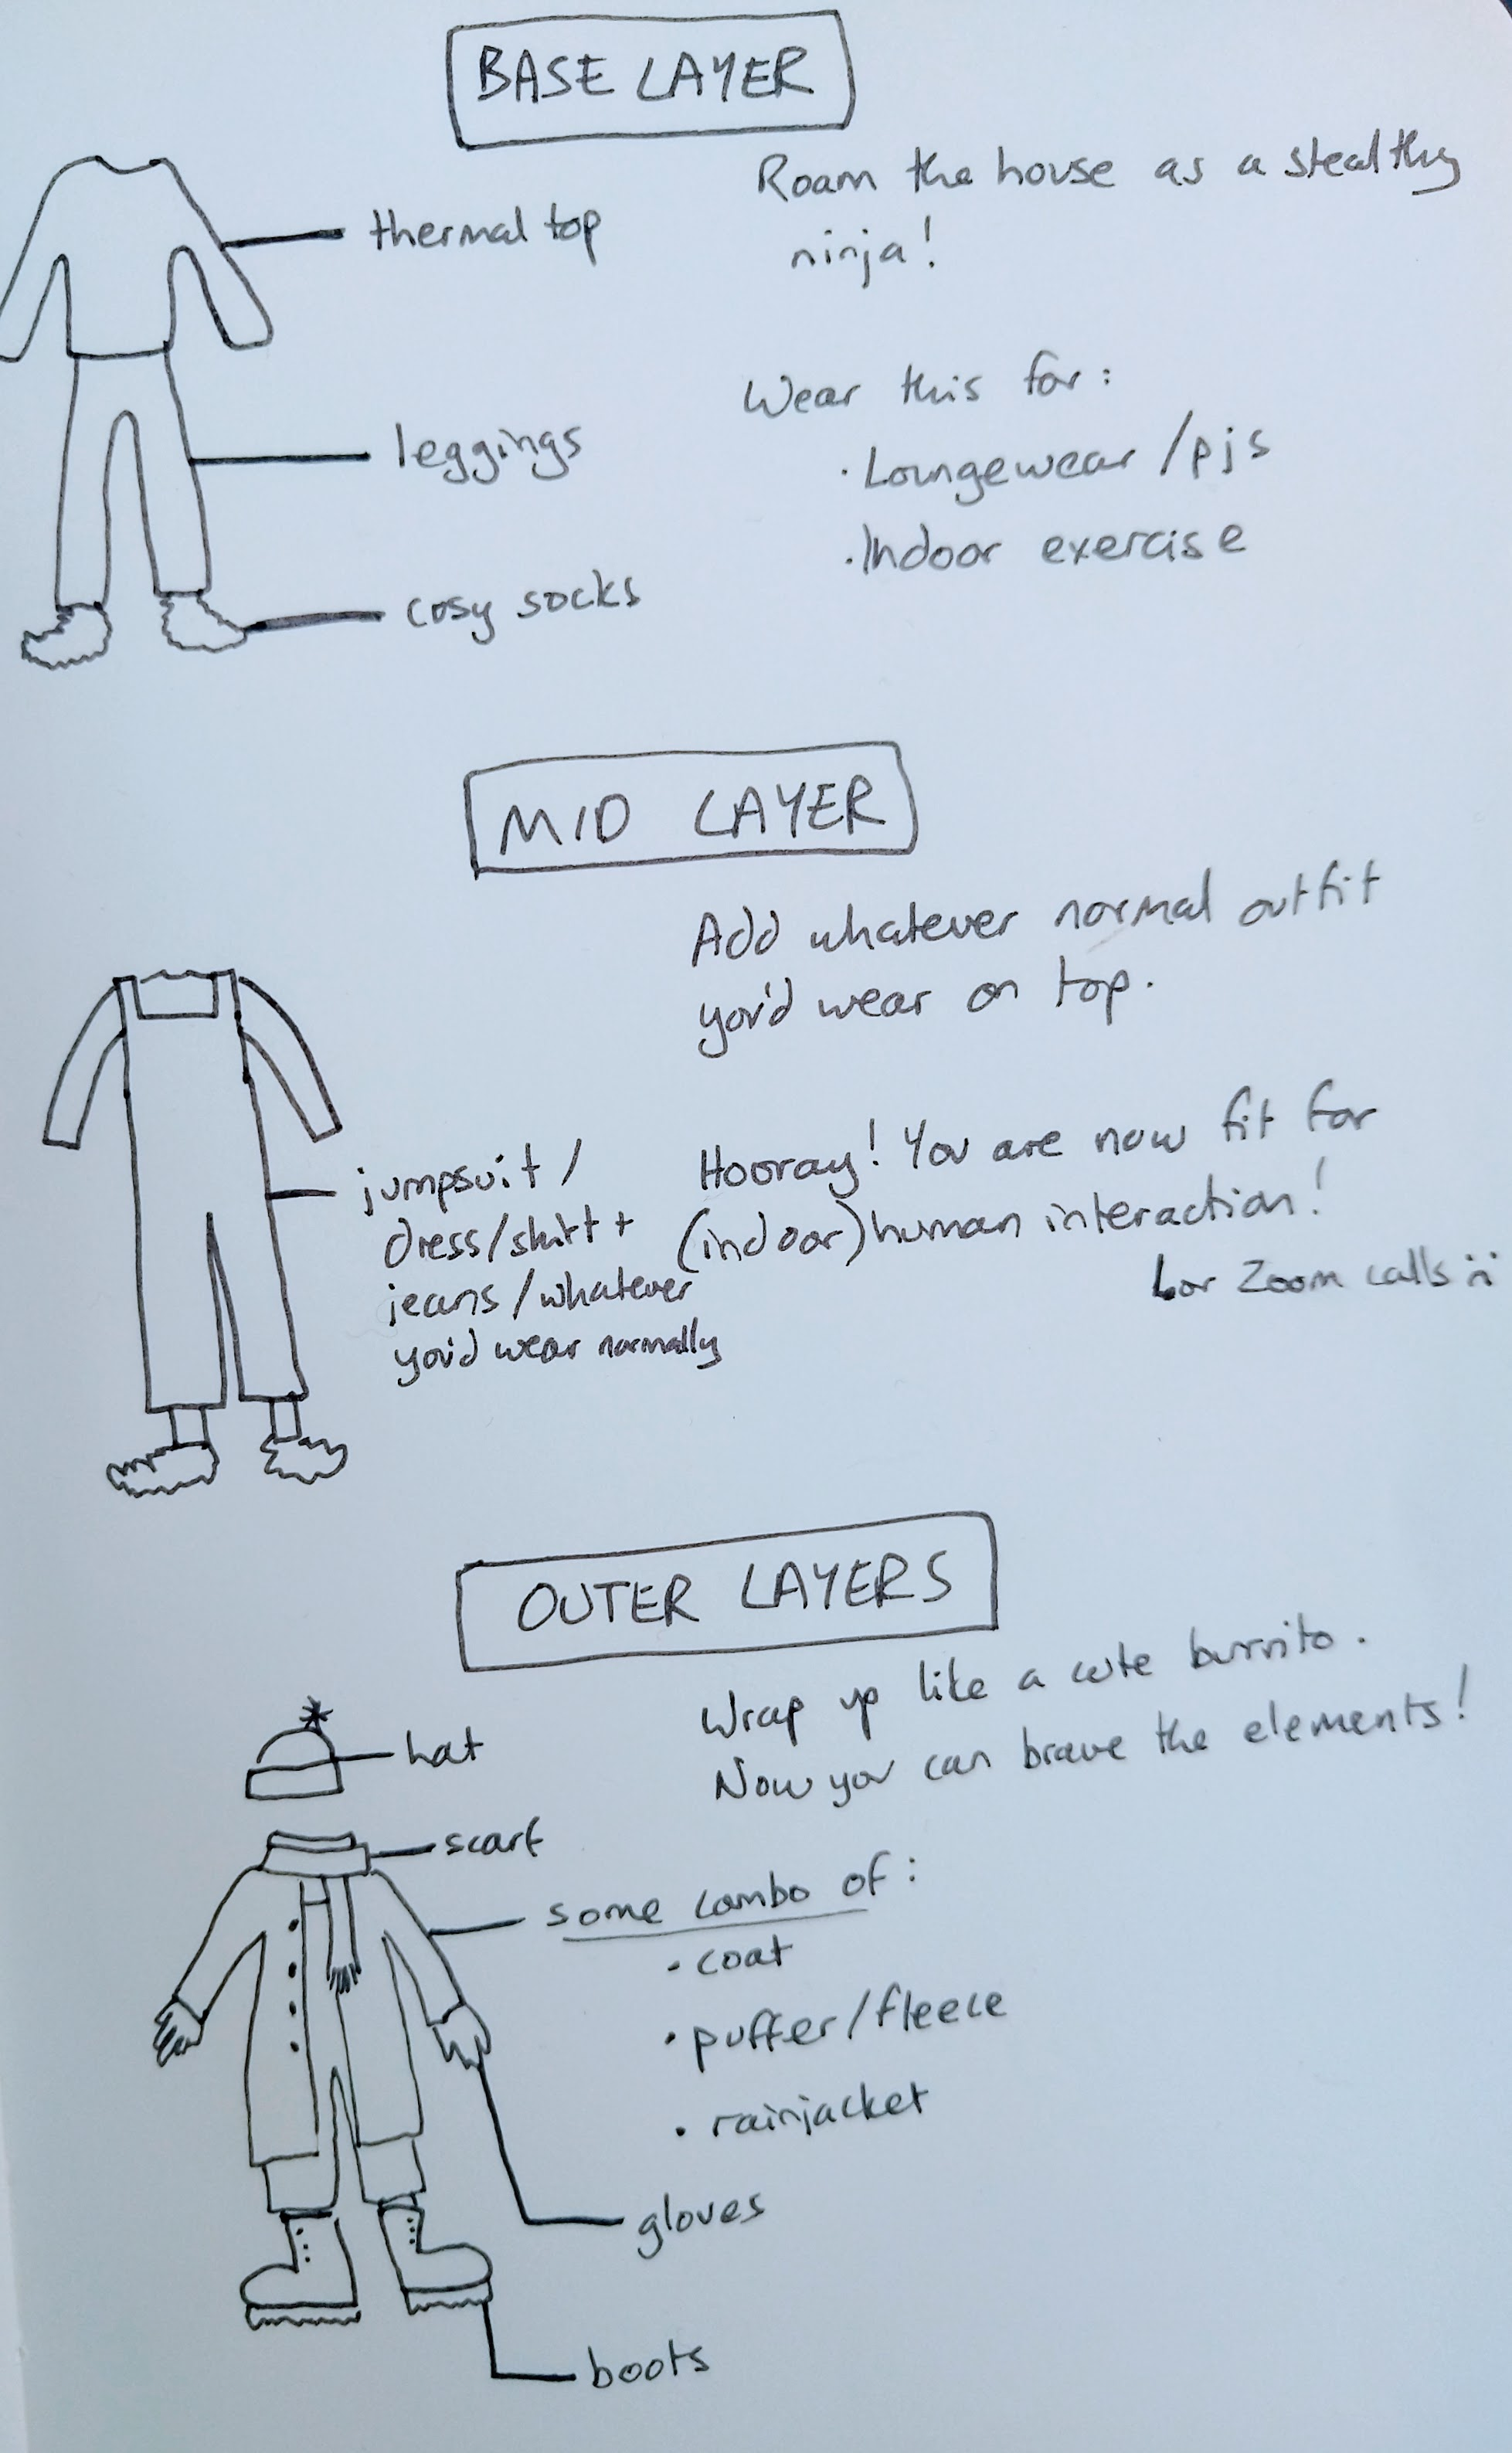 BASE LAYER
Roam the house as a stealthy
ninja!
thermal top
Wear this for:
· Loungewear/pjs
leggings
· Indoor exercise
cosy socks
MID LAYER
Add whatever normal outfit
you'd wear on top.
jumpsuit/
dress/shirt +
jeans/whatever
you'd wear normally
Hooray! You are now fit for
(indoor) human interaction!
or Zoom calls :(
OUTER LAYERS
Wrap up like a cute burrito.
Now you can brave the elements!
hat
scarf
some combo of:
· coat
· puffer/fleece
· rainjacket
gloves
boots